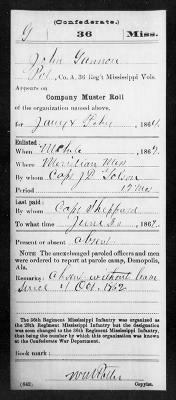 (Confederate.)
G 36 Miss.
John Gannon
Pvt., Co. A, 36 Reg't Mississippi Vols.
Appears on
Company Muster Roll
of the organization named above,
for Jany & Feby, 1864.
Enlisted:
When Mch 6, 1862.
Where Meridian Miss
By whom Capt J D
Period 12 Mos
Last paid:
By whom Capt Sheppard
To what time June 30, 1863.
Present or absent absent
NOTE.—The unexchanged paroled officers and men
were ordered to report at parole camp, Demopolis,
Ala.
Remarks: Absent without leave
since 4 Oct. 1862
The 36th Regiment Mississippi Infantry was organized as
the 28th Regiment Mississippi Infantry but the designation
was soon changed to the 36th Regiment Mississippi Infantry,
that being the number by which this organization was known
at the Confederate War Department.
Book mark:
(642)
Copyist.